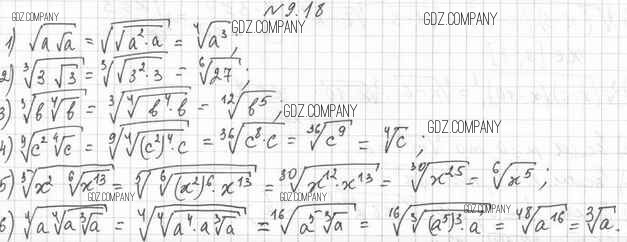 №9.18
GDZ.COMPANY
GDZ.COMPANY
GDZ.COMPANY
1) √(a√a) = √(√(a²·a)) = ⁴√(a³);
2) ³√(3√3) = ³√(√(3²·3)) = ⁶√27;
3) ³√(b⁴√b) = ³√(⁴√(b⁴·b)) = ¹²√(b⁵),
GDZ.COMPANY
4) ⁹√(c² ⁴√c) = ⁹√(⁴√((c²)⁴·c)) = ³⁶√(c⁸·c) = ³⁶√(c⁹) = ⁴√c;
GDZ.COMPANY
5) ⁵√(x² ⁶√(x¹³)) = ⁵√(⁶√((x²)⁶·x¹³)) = ³⁰√(x¹²·x¹³) = ³⁰√(x²⁵) = ⁶√(x⁵);
GDZ.COMPANY
GDZ.COMPANY
GDZ.COMPANY
6) ⁴√(a⁴√(a³√a)) = ⁴√(⁴√(a⁴·a³√a)) = ¹⁶√(a⁵·³√a) = ¹⁶√(³√((a⁵)³·a)) = ⁴⁸√(a¹⁶) = ³√a.